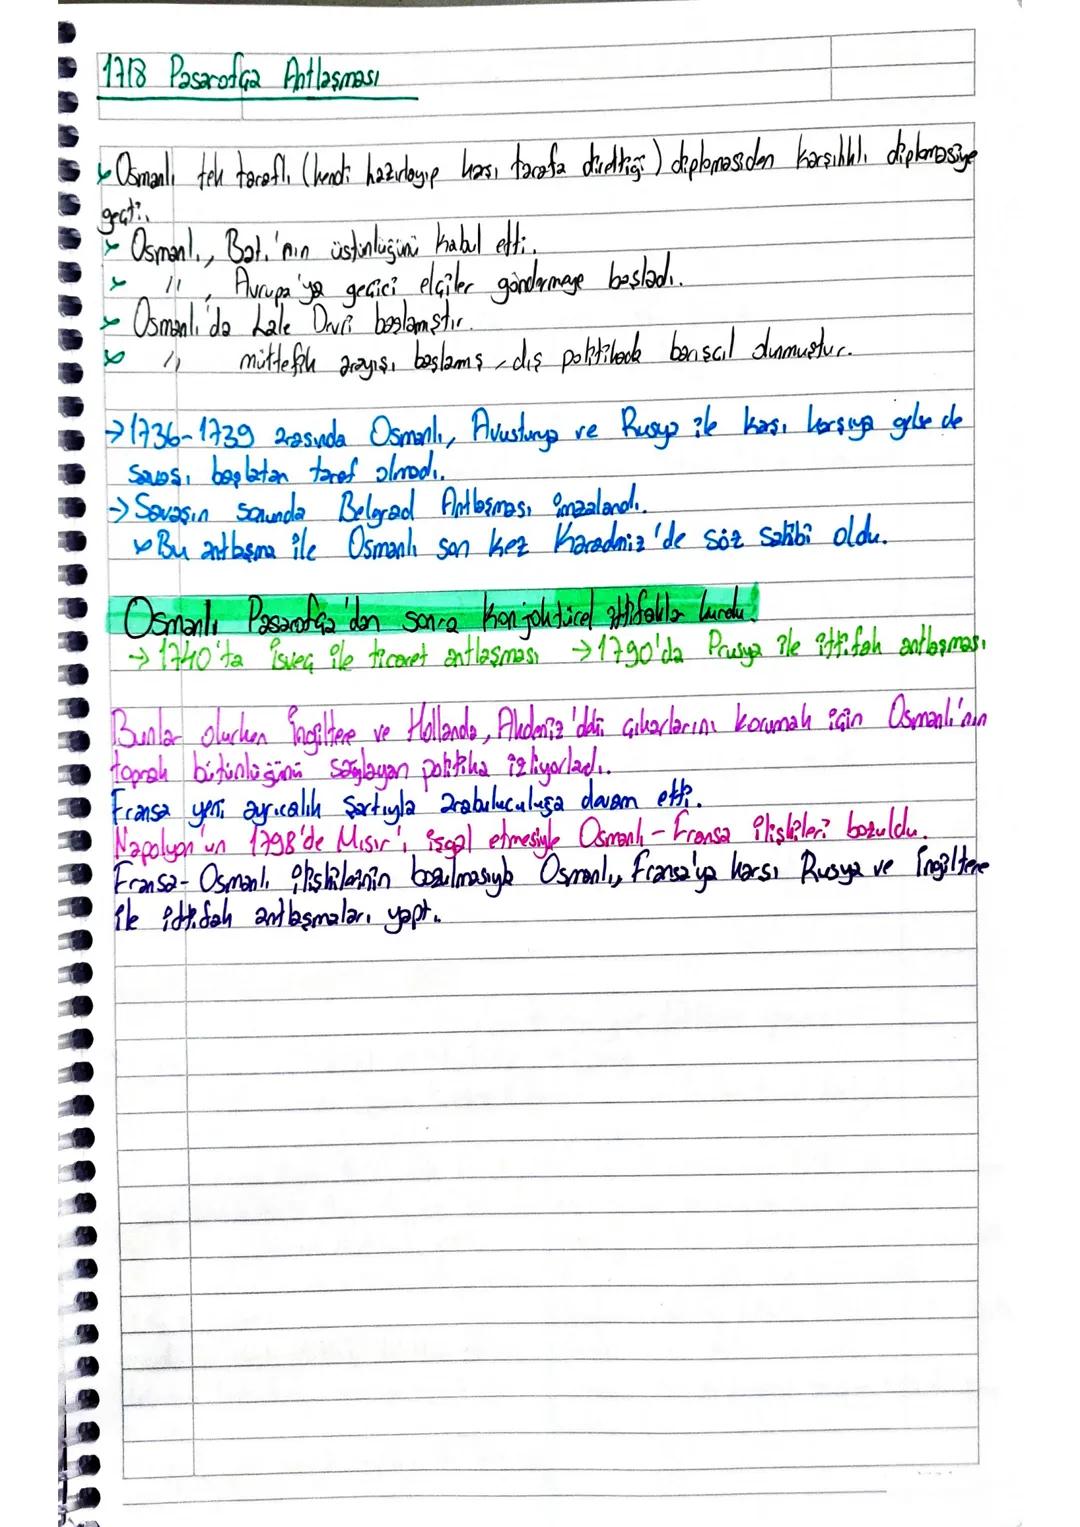 1718 Pasarofça Antlaşması
Osmanlı tek taraflı (kendi hazırlayıp karşı tarafa direttiği) diplomasiden karşılıklı diplomasiye
geçti.
Osmanlı, Batı'nın üstünlüğünü kabul etti.
" , Avrupa'ya geçici elçiler göndermeye başladı.
Osmanlı'da Lale Devri başlamıştır.
" müttefik arayışı başlamış, dış politikada barışcıl durmuştur.
→1736-1739 arasında Osmanlı, Avusturya ve Rusya ile karşı karşıya gelse de
savaşı başlatan taraf olmadı.
→ Savaşın sonunda Belgrad Antlaşması imzalandı.
Bu antlaşma ile Osmanlı son kez Karadeniz'de söz sahibi oldu.
Osmanlı Pasarofça'dan sonra konjoktürel ittifaklar kurdu.
→ 1740'ta İsveç ile ticaret antlaşması → 1790'da Prusya ile ittifak antlaşması
Bunlar olurken İngiltere ve Hollanda, Akdeniz'deki çıkarlarını korumak için Osmanlı'nın
toprak bütünlüğünü sağlayan politika izliyorlardı.
Fransa yeni ayrıcalık şartıyla arabuluculuğa devam etti.
Napolyon'un 1798'de Mısır'ı işgal etmesiyle Osmanlı-Fransa ilişkileri bozuldu.
Fransa-Osmanlı ilişkilerinin bozulmasıyla Osmanlı, Fransa'ya karşı Rusya ve İngiltere
ile ittifak antlaşmaları yaptı.